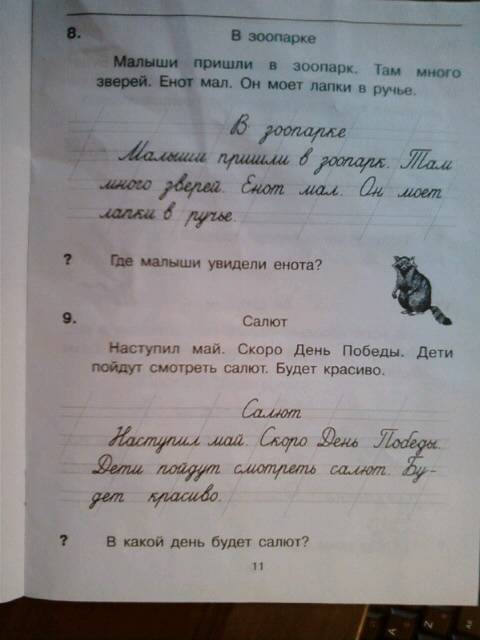 8.
В зоопарке
Малыши пришли в зоопарк. Там много
зверей. Енот мал. Он моет лапки в ручье.
В зоопарке
Малыши пришли в зоопарк. Там
много зверей. Енот мал. Он моет
лапки в ручье.
? Где малыши увидели енота?
9.
Салют
Наступил май. Скоро День Победы. Дети
пойдут смотреть салют. Будет красиво.
Салют
Наступил май. Скоро День Победы.
Дети пойдут смотреть салют. Бу-
дет красиво.
? В какой день будет салют?
11